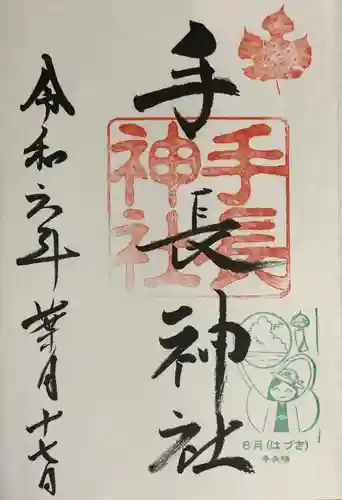 手長神社
手長
神社
令和六年 葉月十七日
8月(はづき)
手長様